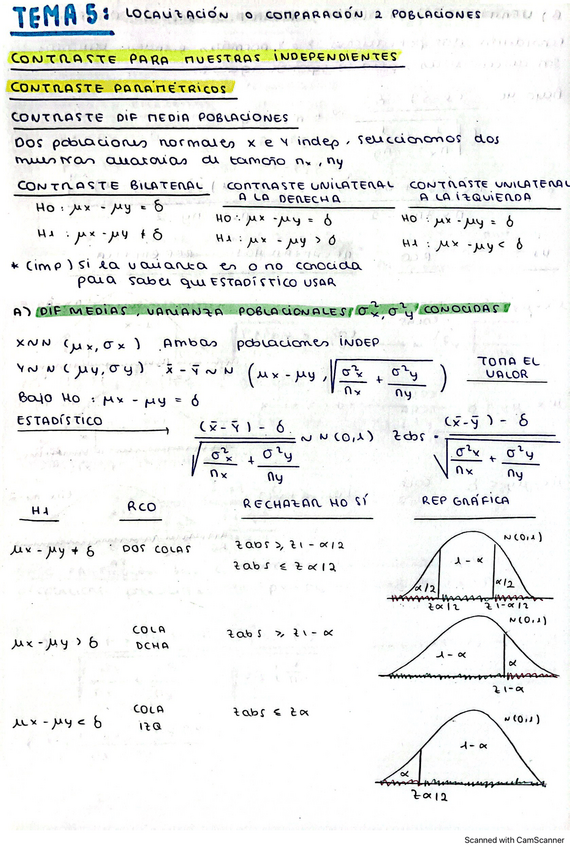 TEMA 5: LOCALIZACIÓN O COMPARACIÓN 2 POBLACIONES
CONTRASTE PARA MUESTRAS INDEPENDIENTES
CONTRASTE PARAMÉTRICOS
CONTRASTE DIF MEDIA POBLACIONES
Dos poblaciones normales X e Y indep. seleccionamos dos
muestras aleatorias de tamaño nx, ny
CONTRASTE BILATERAL
H0: μx - μy = δ
H1: μx - μy ≠ δ
CONTRASTE UNILATERAL
A LA DERECHA
H0: μx - μy = δ
H1: μx - μy > δ
CONTRASTE UNILATERAL
A LA IZQUIERDA
H0: μx - μy = δ
H1: μx - μy < δ
* (imp) si la varianza es o no conocida
para saber que ESTADÍSTICO USAR
A) DIF MEDIAS, VARIANZA POBLACIONALES σ²x, σ²y CONOCIDAS
X~N (μx, σx) Ambas poblaciones INDEP
Y~N (μy, σy) x̄ - ȳ ~ N (μx - μy, √(σ²x/nx + σ²y/ny)) TOMA EL
VALOR
Bajo H0: μx - μy = δ
ESTADÍSTICO → ((x̄-ȳ) - δ)/√(σ²x/nx + σ²y/ny) ~ N(0,1) Zobs = ((x̄-ȳ) - δ)/√(σ²x/nx + σ²y/ny)
H1 RCO RECHAZAR H0 SÍ REP GRÁFICA
μx - μy ≠ δ DOS COLAS Zobs ≥ Z1-α/2
Zobs ≤ Zα/2
N(0,1)
1-α
α/2 α/2
Zα/2 Z1-α/2
μx - μy > δ COLA
DCHA
Zobs ≥ Z1-α
N(0,1)
1-α α
Z1-α
μx - μy < δ COLA
IZQ
Zobs ≤ Zα
N(0,1)
1-α
α
Zα/2
Scanned with CamScanner